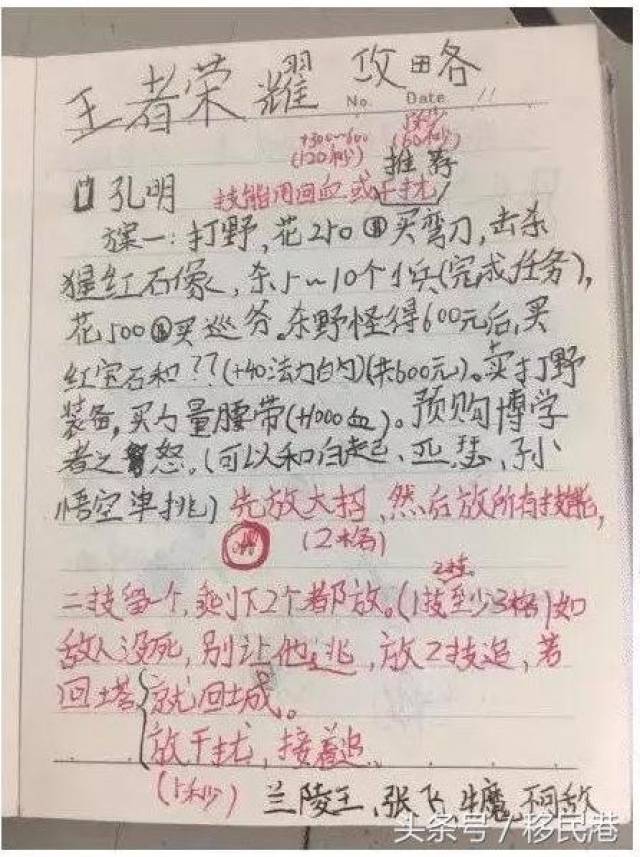 王者荣耀 攻略
No. Date
+300~600 5秒
(120秒) (60秒)
推荐
口 孔明 技能用回血或干扰
方案一:打野,花250 买弯刀,击杀
猩红石像,杀5~10个小兵(完成任务),
花500 买巡务。杀野怪得600元后,买
红宝石和??(+40法力白勺)(共600元)。卖打野
装备,买力量腰带(+1000血)。预购博学
者之怒。(可以和白起、亚瑟、孙
悟空单挑)先放大招,然后放所有技能,
(2格)
二技留一个,剩下2个都放。(1技至少3格)如
敌人没死,别让他逃,放2技追,若
回塔 就回城。
放干扰,接着追
(5秒) 兰陵王、张飞、牛魔,不同敌
头条号 / 移民港